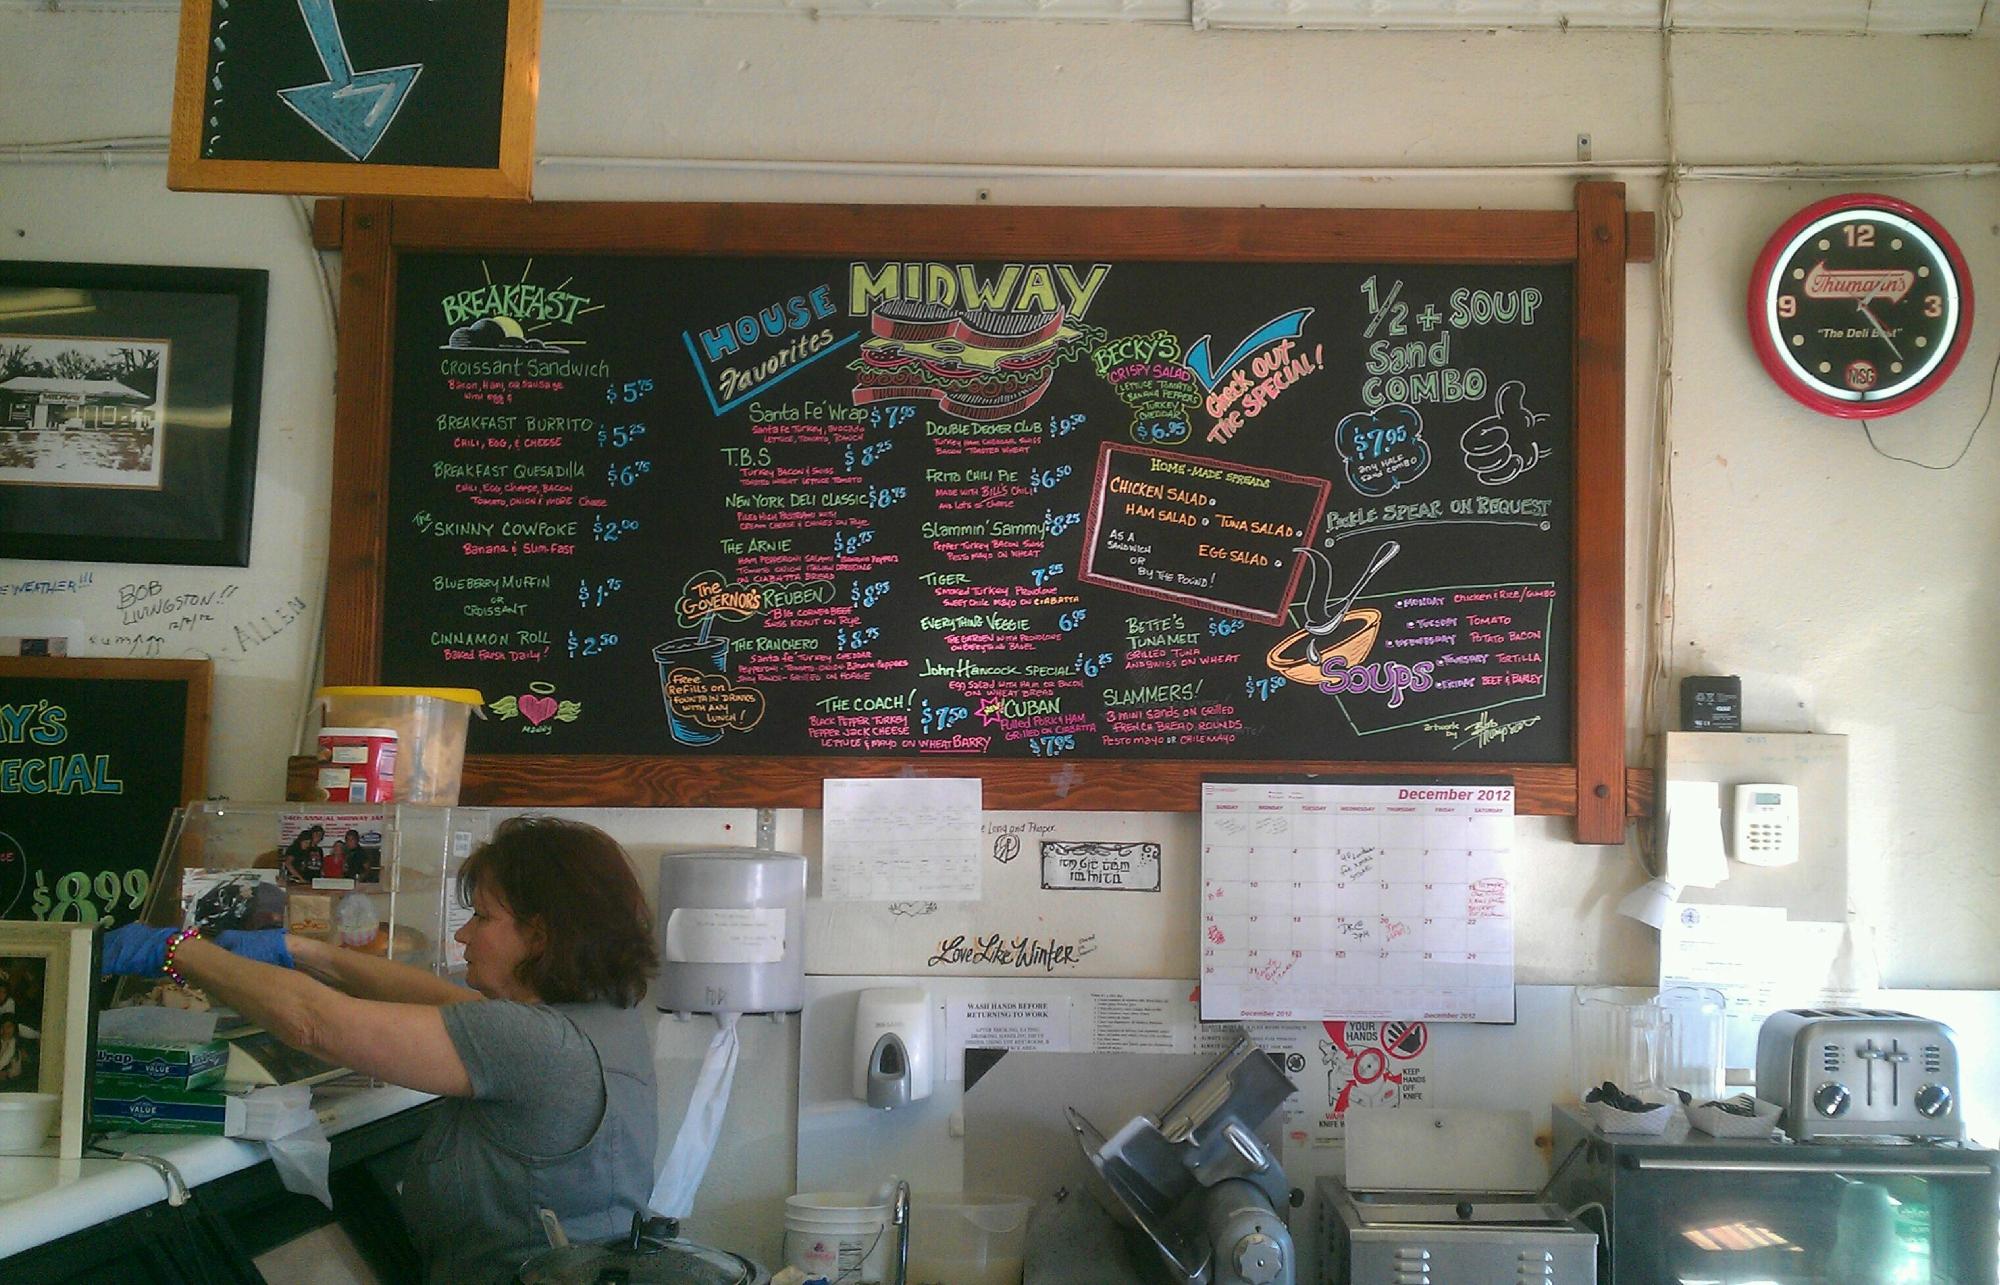 BREAKFAST
CROISSANT SANDWICH $5.75
Bacon, Ham, or Sausage
with egg
BREAKFAST BURRITO $5.25
CHILI, EGG, & CHEESE
BREAKFAST QUESADILLA $6.75
CHILI, EGG, CHEESE, BACON
TOMATO, ONION & MORE Cheese
The SKINNY COWPOKE $2.00
Banana & Slim-Fast
BLUEBERRY MUFFIN $1.75
OR
CROISSANT
CINNAMON ROLL $2.50
Baked Fresh Daily!
MIDWAY
HOUSE
Favorites
Santa Fe' Wrap $7.95
Santa Fe Turkey, Avocado
LETTUCE, TOMATO, RANCH
T.B.S $8.25
Turkey Bacon & Swiss
TOASTED WHEAT LETTUCE TOMATO
NEW YORK DELI CLASSIC $8.75
PILED HIGH PASTRAMI WITH
CREAM CHEESE & CHIVES ON Rye
THE ARNIE $8.75
HAM PEPPERONI SALAMI BANANA PEPPERS
TOMATO ONION ITALIAN DRESSING
ON CIABATTA BREAD
The GOVERNOR'S REUBEN $8.95
BIG CORNED BEEF
SWISS KRAUT ON Rye
THE RANCHERO $8.75
Santa fe' Turkey CHEDDAR
PEPPERONI - TOMATO - ONION Banana Peppers
Spicy RANCH - GRILLED ON HOAGIE
Free
Refills on
FOUNTAIN DRINKS
WITH ANY
LUNCH!
THE COACH! $7.50
BLACK PEPPER TURKEY
PEPPER JACK CHEESE
LETTUCE & MAYO ON WHEATBARRY
DOUBLE DECKER CLUB $9.50
TURKEY HAM CHEDDAR SWISS
BACON TOASTED WHEAT
FRITO CHILI PIE $6.50
MADE WITH BILL'S CHILI
AND LOTS OF Cheese
Slammin' Sammy $8.25
Pepper Turkey BACON Swiss
Pesto mayo ON WHEAT
TIGER 7.25
Smoked Turkey Provolone
SWEET CHILE MAYO ON CIABATTA
EVERYTHING VEGGIE 6.95
THE GARDEN WITH PROVOLONE
ON EVERYTHING BAGEL
John Hancock SPECIAL $6.25
Egg Salad WITH HAM OR BACON
ON WHEAT BREAD
new CUBAN
Pulled PORK & HAM
GRILLED ON CIABATTA
$7.95
BECKY'S
CRISPY SALAD
LETTUCE TOMATO
BANANA PEPPERS
TURKEY
CHEDDAR
$6.95
Check OUT
THE SPECIAL!
HOME-MADE SPREADS
CHICKEN SALAD
HAM SALAD TUNA SALAD
EGG SALAD
AS A
SANDWICH
OR
BY THE POUND!
BETTE'S $6.25
TUNA MELT
GRILLED TUNA
AND SWISS ON WHEAT
SLAMMERS! $7.50
3 mini Sands ON GRILLED
FRENCH BREAD ROUNDS
Pesto mayo OR CHILE MAYO
1/2 + SOUP
Sand
COMBO
$7.95
any HALF
sand combo
PICKLE SPEAR ON REQUEST
SOUPS
MONDAY Chicken & Rice/GUMBO
TUESDAY TOMATO
WEDNESDAY POTATO BACON
THURSDAY TORTILLA
FRIDAY BEEF & BARLEY
artwork
by
12
3
9
Thumann's
"The Deli Best"
MSG
MIDWAY
E WEATHER!!!
BOB
LIVINGSTON!!
12/7/12
- ALLEN
AY'S
ECIAL
$8.99
14th ANNUAL MIDWAY
Wrap
VALUE
VALUE
e Long and Prosper
Love Like Winter
WASH HANDS BEFORE
RETURNING TO WORK
December 2012
SUNDAY MONDAY TUESDAY WEDNESDAY THURSDAY FRIDAY SATURDAY
1
2 3 4 5 6 7 8
9 10 11 12 13 14 15
16 17 18 19 20 21 22
23 24 25 26 27 28 29
30 31
December 2012 December 2012
YOUR
HANDS
KEEP
HANDS
OFF
KNIFE